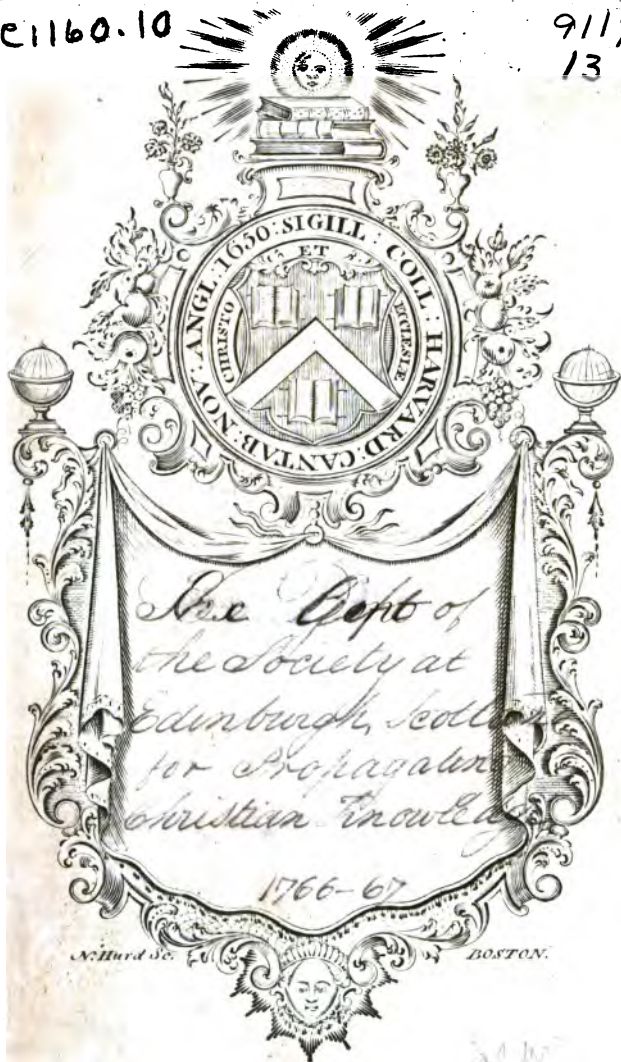 C1160.10
911
13
SIGILL : COLL : HARVARD : CANTAB : NOV : ANGL : 1650 :
CHRISTO ET ECCLESIÆ
The Gift of
the Society at
Edinburgh,
for Propagatin
Christian Knowledg
1766-67
N. Hurd Sc.
BOSTON.